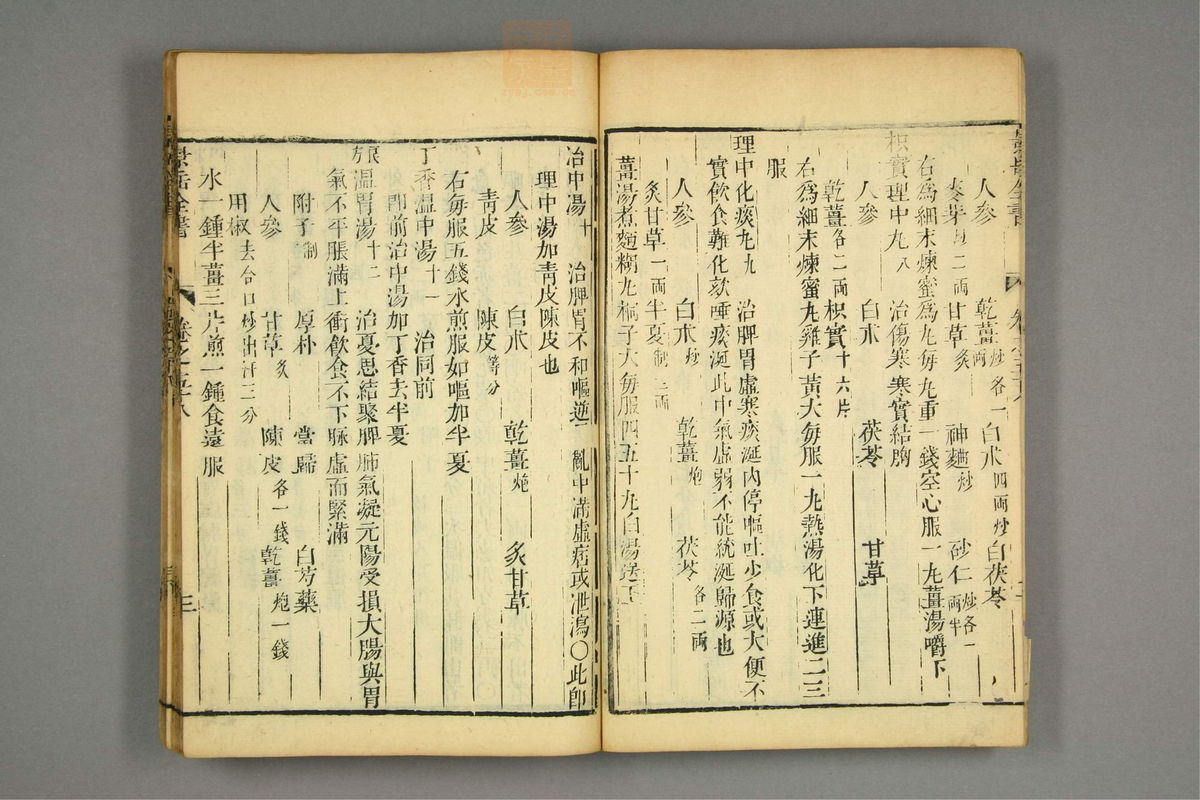 人參 乾薑炒各一兩 白朮四兩炒 白茯苓
麥芽各二兩 甘草炙 神麯炒 砂仁炒各一兩半
右爲細末煉蜜爲丸每丸重一錢空心服一丸薑湯嚼下
枳實理中丸八 治傷寒寒實結胸
人參 白朮 茯苓 甘草
乾薑各二兩 枳實十六片
右爲細末煉蜜丸雞子黃大每服一丸熱湯化下連進二三
服
理中化痰丸九 治脾胃虛寒痰涎內停嘔吐少食或大便不
實飲食難化欬唾痰涎此中氣虛弱不能統涎歸源也
人參 白朮炒 乾薑炮 茯苓各二兩
炙甘草一兩 半夏制三兩
薑湯煮麵糊丸桐子大每服四五十丸白湯送下
治中湯十 治脾胃不和嘔逆亂中滿虛痞或泄瀉○此卽
理中湯加靑皮陳皮也
人參 白朮 乾薑炮 炙甘草
靑皮 陳皮等分
右每服五錢水煎服如嘔加半夏
丁香溫中湯十一 治同前
卽前治中湯加丁香去半夏
溫胃湯十二 治憂思結聚脾肺氣凝元陽受損大腸與胃
氣不平脹滿上衝飲食不下脈虛而緊滿
附子制 厚朴 當歸 白芍藥
人參 甘草炙 陳皮各一錢 乾薑炮一錢
用椒去合口炒出汗三分
水一鍾半薑三片煎一鍾食遠服
景岳全書 卷之五十八 三